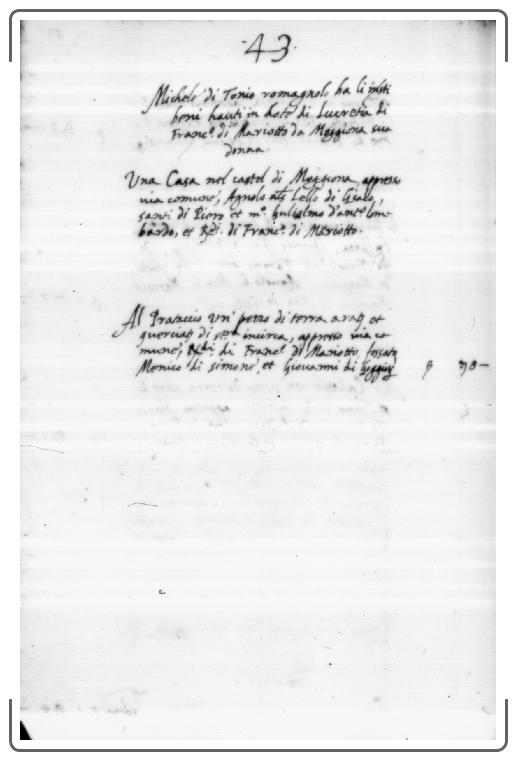 43
Michele di Tonio romagnolo ha li insti
beni hauti in dote di Lucretia di
Franc.º di Mariotto da Moggiona sua
donna.
Una Casa nel castel di Moggiona, appresso
via comune, Agnolo als Lello di Giaco,
santi di Piero et m.º Guliolmo d'ant.º lom-
bardo, et Rdi. di Franc.º di Mariotto.
Al Prataccio Un' pezzo di terra arat et
querciat di in circa, appresso via co-
mune, Rdi. di Franc.º di Mariotto, fossato,
Menico di Simone, et Giovanni di